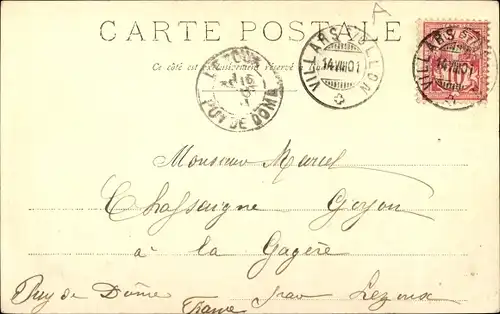 A
CARTE POSTALE
Ce côté est exclusivement réservé à
LEZOUX
PUY DE DOME
VILLARS S/OLLON
14.VIII.01
VILLARS
14.VIII.01
Monsieur Marcel
Chassaigne Goyon
à la Gagère
Puy de Dôme par Lezoux
France